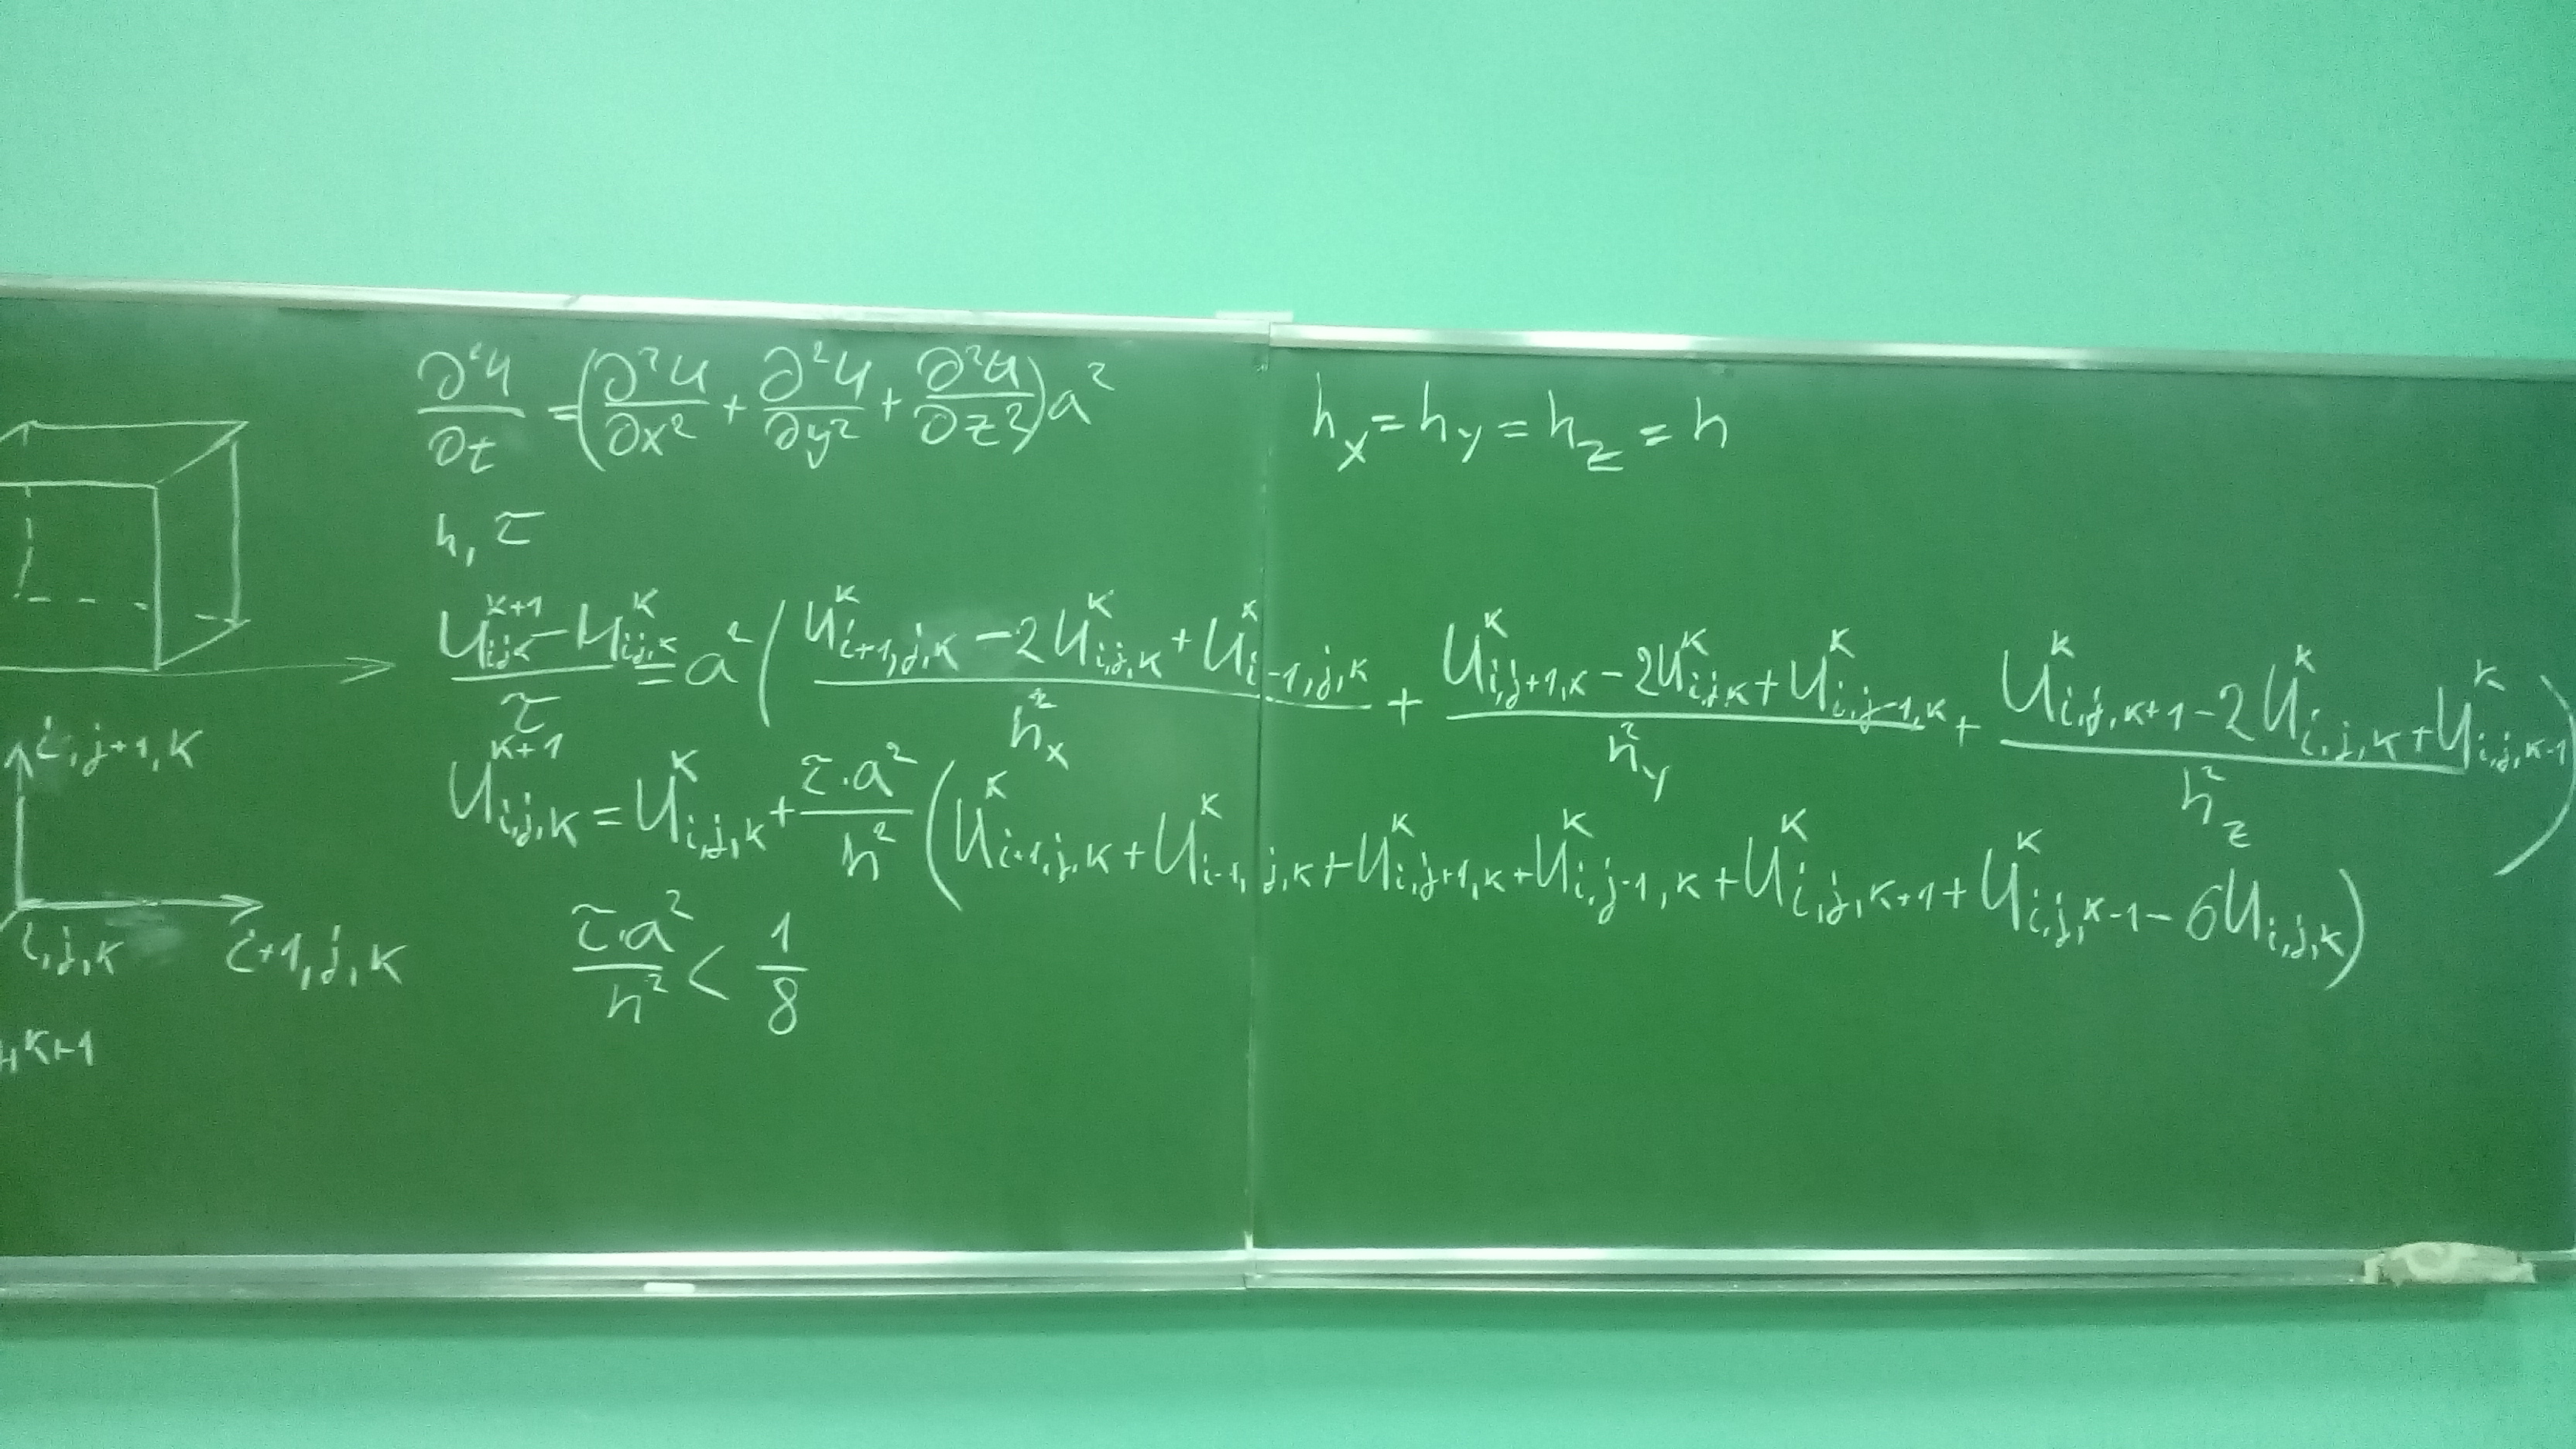 ∂²u/∂t = (∂²u/∂x² + ∂²u/∂y² + ∂²u/∂z²)a²
h_x = h_y = h_z = h
h, τ
(u_{ijk}^{k+1} - u_{ij,k}^{k})/τ = a²((u_{i+1,j,k}^{k} - 2u_{i,j,k}^{k} + u_{i-1,j,k}^{k})/h_x² + (u_{i,j+1,k}^{k} - 2u_{i,j,k}^{k} + u_{i,j-1,k}^{k})/h_y² + (u_{i,j,k+1}^{k} - 2u_{i,j,k}^{k} + u_{i,j,k-1}^{k})/h_z²)
u_{i,j,k}^{k+1} = u_{i,j,k}^{k} + (τ·a²)/h² (u_{i+1,j,k}^{k} + u_{i-1,j,k}^{k} + u_{i,j+1,k}^{k} + u_{i,j-1,k}^{k} + u_{i,j,k+1}^{k} + u_{i,j,k-1}^{k} - 6u_{i,j,k})
(τ·a²)/h² < 1/8
i,j+1,k
i,j,k
i+1,j,k
,k+1